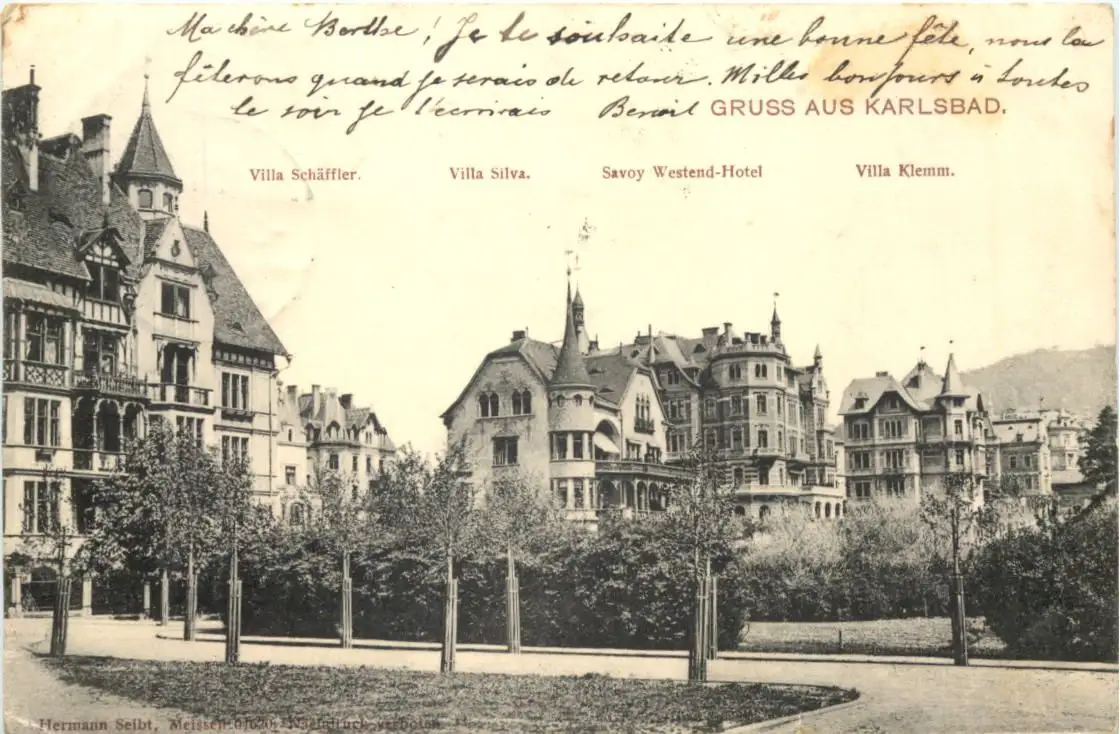 Ma chère Berthe! Je te souhaite une bonne fête, nous la
fêterons quand je serais de retour. Milles bonjours à toutes
le soir je t'ecrirais Benoit
GRUSS AUS KARLSBAD.
Villa Schäffler. Villa Silva. Savoy Westend-Hotel Villa Klemm.
Hermann Seibt, Meissen Nachdruck verboten